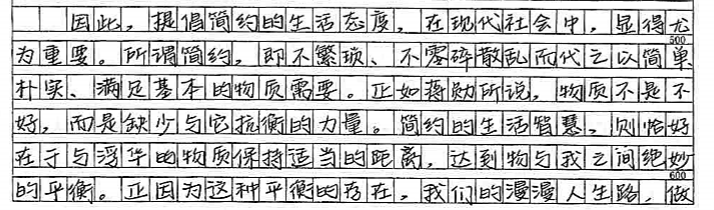 因此，提倡简约的生活态度，在现代社会中，显得尤
500
为重要。所谓简约，即不繁琐、不零碎散乱而代之以简单
朴实、满足基本的物质需要。正如蒋勋所说，物质不是不
好，而是缺少与它抗衡的力量。简约的生活智慧，则恰好
在于与浮华的物质保持适当的距离，达到物与我之间绝妙
600
的平衡。正因为这种平衡的存在，我们的漫漫人生路，做